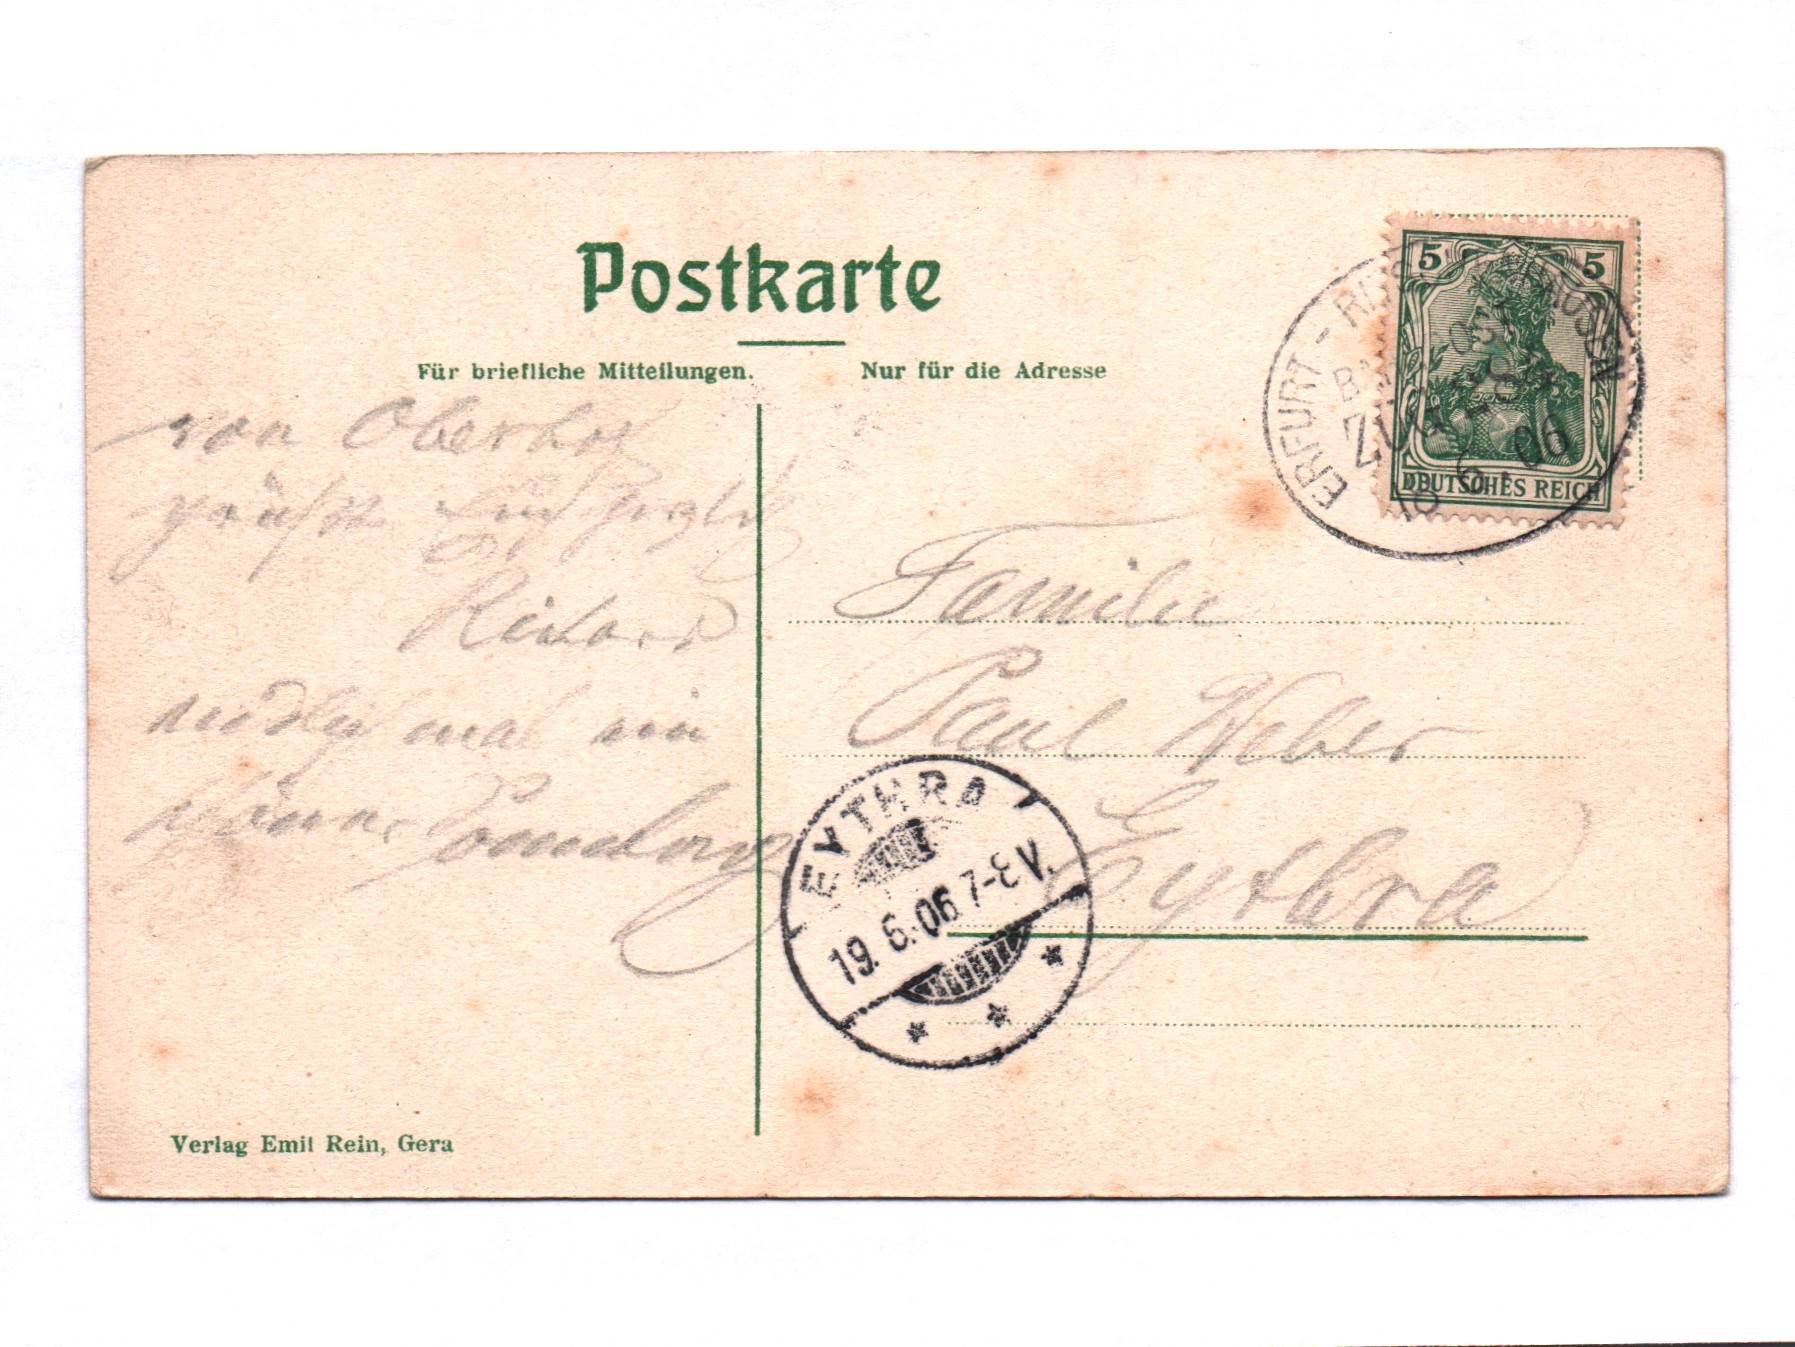 Postkarte
Für briefliche Mitteilungen.
Nur für die Adresse
5 5
DEUTSCHES REICH
ERFURT - 
ZUG
6. 06
von Oberhof
grüßt Euch herzlich
Richard
endlich mal ein
schöner
Familie
Paul Weber
Eythra
EYTHRA
19. 6. 06 7-8 V.
Verlag Emil Rein, Gera